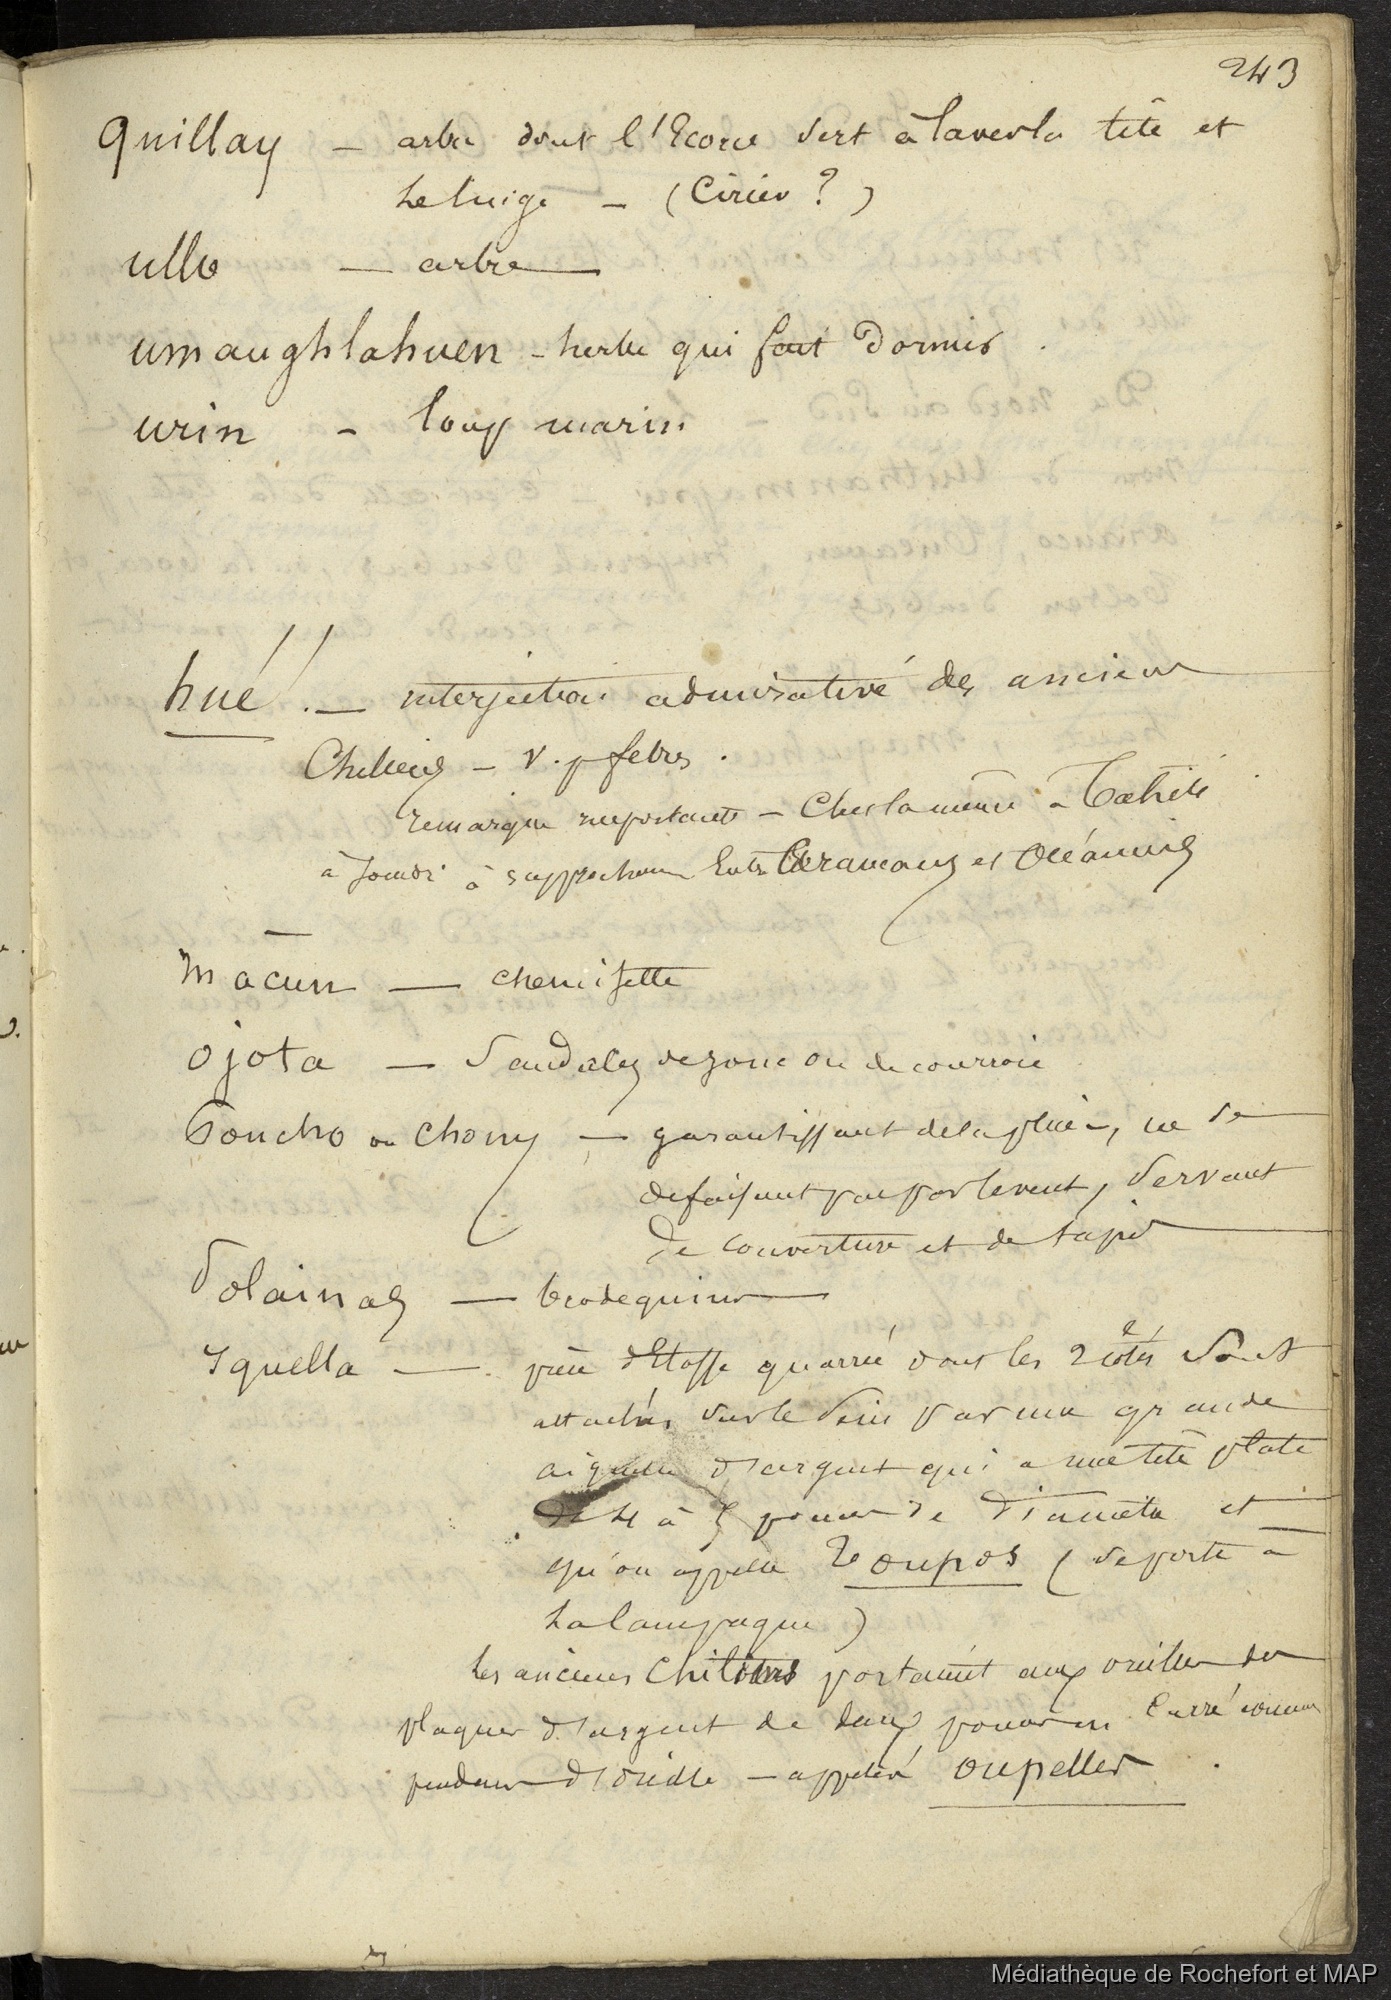 243
Quillay — arbre dont l'Ecorce sert à laver la tête et
le linge — (Cirier ?)
ullo — arbre
umaughlahuen - herbe qui fait dormir.
urin - loup marin
hué ! — interjection admirative des anciens
Chiliens — v. p febres.
remarque importante — C'est la même à Tahiti
à joindre à rapprochement Entre Araucans et Océaniens
mâcun — chemisette
ojota — Sandales de jonc ou de courroie
Poncho ou Chony — garantissant de la pluie, ne se
défaisant pas par le vent, servant
de couverture et de tapis
Polainas — brodequins
Iquella — pièce d'Etoffe quarrée dont les 2 côtés sont
attachés sur le sein par une grande
aiguille d'argent qui a une tête plate
de 4 à 5 pouces de diamètre et
qu'on appelle Toupos (se porte à
la campagne)
les anciens Chiliens portaient aux oreilles des
plaques d'argent de deux pouces en Carré comme
pendans d'oreille — appelés oupelles.
Médiathèque de Rochefort et MAP